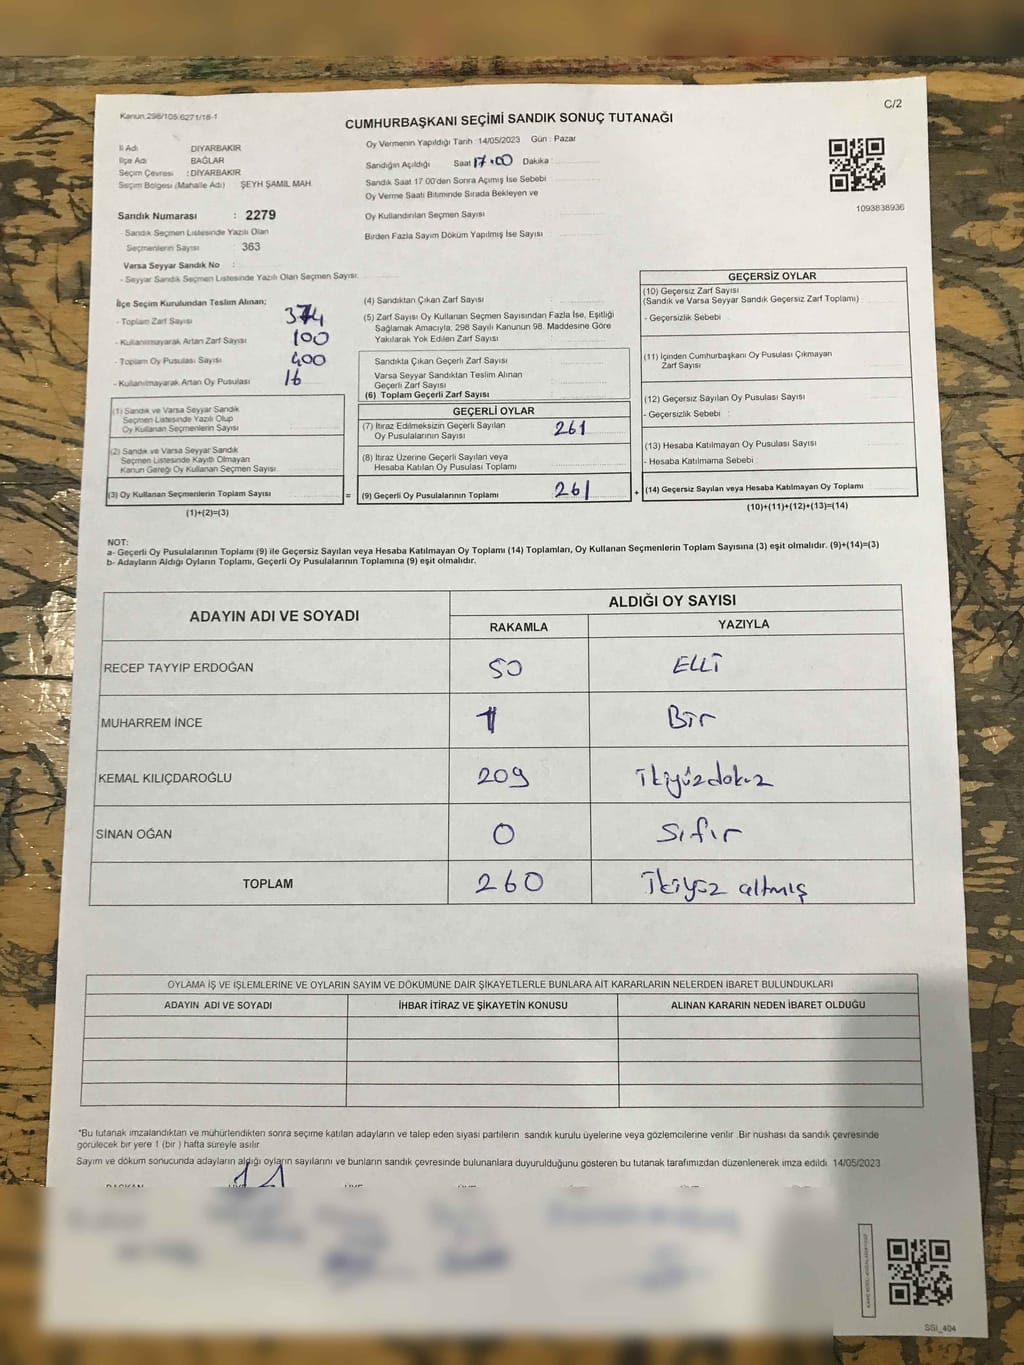 Kanun 298/105.6271/18-1
C/2
CUMHURBAŞKANI SEÇİMİ SANDIK SONUÇ TUTANAĞI
İl Adı DİYARBAKIR
İlçe Adı BAĞLAR
Seçim Çevresi : DİYARBAKIR
Seçim Bölgesi (Mahalle Adı) ŞEYH ŞAMİL MAH
Oy Vermenin Yapıldığı Tarih : 14/05/2023 Gün : Pazar
Sandığın Açıldığı Saat 17.00 Dakika :
Sandık Saat 17 00'den Sonra Açımış İse Sebebi
Oy Verme Saati Bitiminde Sırada Bekleyen ve
Oy Kullandırılan Seçmen Sayısı
Birden Fazla Sayım Döküm Yapılmış İse Sayısı
1093838936
Sandık Numarası : 2279
- Sandık Seçmen Listesinde Yazılı Olan
Seçmenlerin Sayısı 363
Varsa Seyyar Sandık No :
- Seyyar Sandık Seçmen Listesinde Yazılı Olan Seçmen Sayısı:
İlçe Seçim Kurulundan Teslim Alınan;
- Toplam Zarf Sayısı 374
- Kullanılmayarak Artan Zarf Sayısı 100
- Toplam Oy Pusulası Sayısı 400
- Kullanılmayarak Artan Oy Pusulası 16
(1) Sandık ve Varsa Seyyar Sandık
Seçmen Listesinde Yazılı Olup
Oy Kullanan Seçmenlerin Sayısı
(2) Sandık ve Varsa Seyyar Sandık
Seçmen Listesinde Kayıtlı Olmayan
Kanun Gereği Oy Kullanan Seçmen Sayısı
(3) Oy Kullanan Seçmenlerin Toplam Sayısı =
(1)+(2)=(3)
(4) Sandıktan Çıkan Zarf Sayısı :
(5) Zarf Sayısı Oy Kullanan Seçmen Sayısından Fazla İse, Eşitliği
Sağlamak Amacıyla, 298 Sayılı Kanunun 98. Maddesine Göre
Yakılarak Yok Edilen Zarf Sayısı
Sandıkta Çıkan Geçerli Zarf Sayısı
Varsa Seyyar Sandıktan Teslim Alınan
Geçerli Zarf Sayısı
(6) Toplam Geçerli Zarf Sayısı
GEÇERLİ OYLAR
(7) İtiraz Edilmeksizin Geçerli Sayılan
Oy Pusulalarının Sayısı 261
(8) İtiraz Üzerine Geçerli Sayılan veya
Hesaba Katılan Oy Pusulası Toplamı
(9) Geçerli Oy Pusulalarının Toplamı 261 +
GEÇERSİZ OYLAR
(10) Geçersiz Zarf Sayısı
(Sandık ve Varsa Seyyar Sandık Geçersiz Zarf Toplamı)
- Geçersizlik Sebebi :
(11) İçinden Cumhurbaşkanı Oy Pusulası Çıkmayan
Zarf Sayısı
(12) Geçersiz Sayılan Oy Pusulası Sayısı
- Geçersizlik Sebebi :
(13) Hesaba Katılmayan Oy Pusulası Sayısı
- Hesaba Katılmama Sebebi :
(14) Geçersiz Sayılan veya Hesaba Katılmayan Oy Toplamı
(10)+(11)+(12)+(13)=(14)
NOT:
a- Geçerli Oy Pusulalarının Toplamı (9) ile Geçersiz Sayılan veya Hesaba Katılmayan Oy Toplamı (14) Toplamları, Oy Kullanan Seçmenlerin Toplam Sayısına (3) eşit olmalıdır. (9)+(14)=(3)
b- Adayların Aldığı Oyların Toplamı, Geçerli Oy Pusulalarının Toplamına (9) eşit olmalıdır.
ADAYIN ADI VE SOYADI ALDIĞI OY SAYISI
RAKAMLA YAZIYLA
RECEP TAYYIP ERDOĞAN 50 ELLİ
MUHARREM İNCE 1 Bir
KEMAL KILIÇDAROĞLU 209 İkiyüzdokuz
SİNAN OĞAN 0 Sıfır
TOPLAM 260 İkiyüz altmış
OYLAMA İŞ VE İŞLEMLERİNE VE OYLARIN SAYIM VE DÖKÜMÜNE DAİR ŞİKAYETLERLE BUNLARA AİT KARARLARIN NELERDEN İBARET BULUNDUKLARI
ADAYIN ADI VE SOYADI İHBAR İTİRAZ VE ŞİKAYETİN KONUSU ALINAN KARARIN NEDEN İBARET OLDUĞU
*Bu tutanak imzalandıktan ve mühürlendikten sonra seçime katılan adayların ve talep eden siyasi partilerin sandık kurulu üyelerine veya gözlemcilerine verilir Bir nüshası da sandık çevresinde
görülecek bir yere 1 (bir ) hafta süreyle asılır
Sayım ve döküm sonucunda adayların aldığı oyların sayılarını ve bunların sandık çevresinde bulunanlara duyurulduğunu gösteren bu tutanak tarafımızdan düzenlenerek imza edildi 14/05/2023
SGİ_404